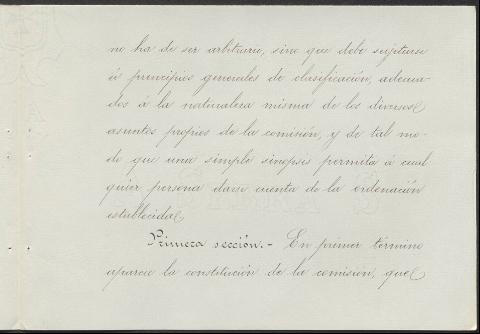 no ha de ser arbitraria, sino que debe sujetarse
á principios generales de clasificación, adecua-
dos á la naturaleza misma de los diversos
asuntos propios de la comisión, y de tal mo-
do que una simple sinopsis permita á cual
quier persona darse cuenta de la ordenación
establecida.
Primera sección.- En primer término
aparece la constitución de la comisión, que